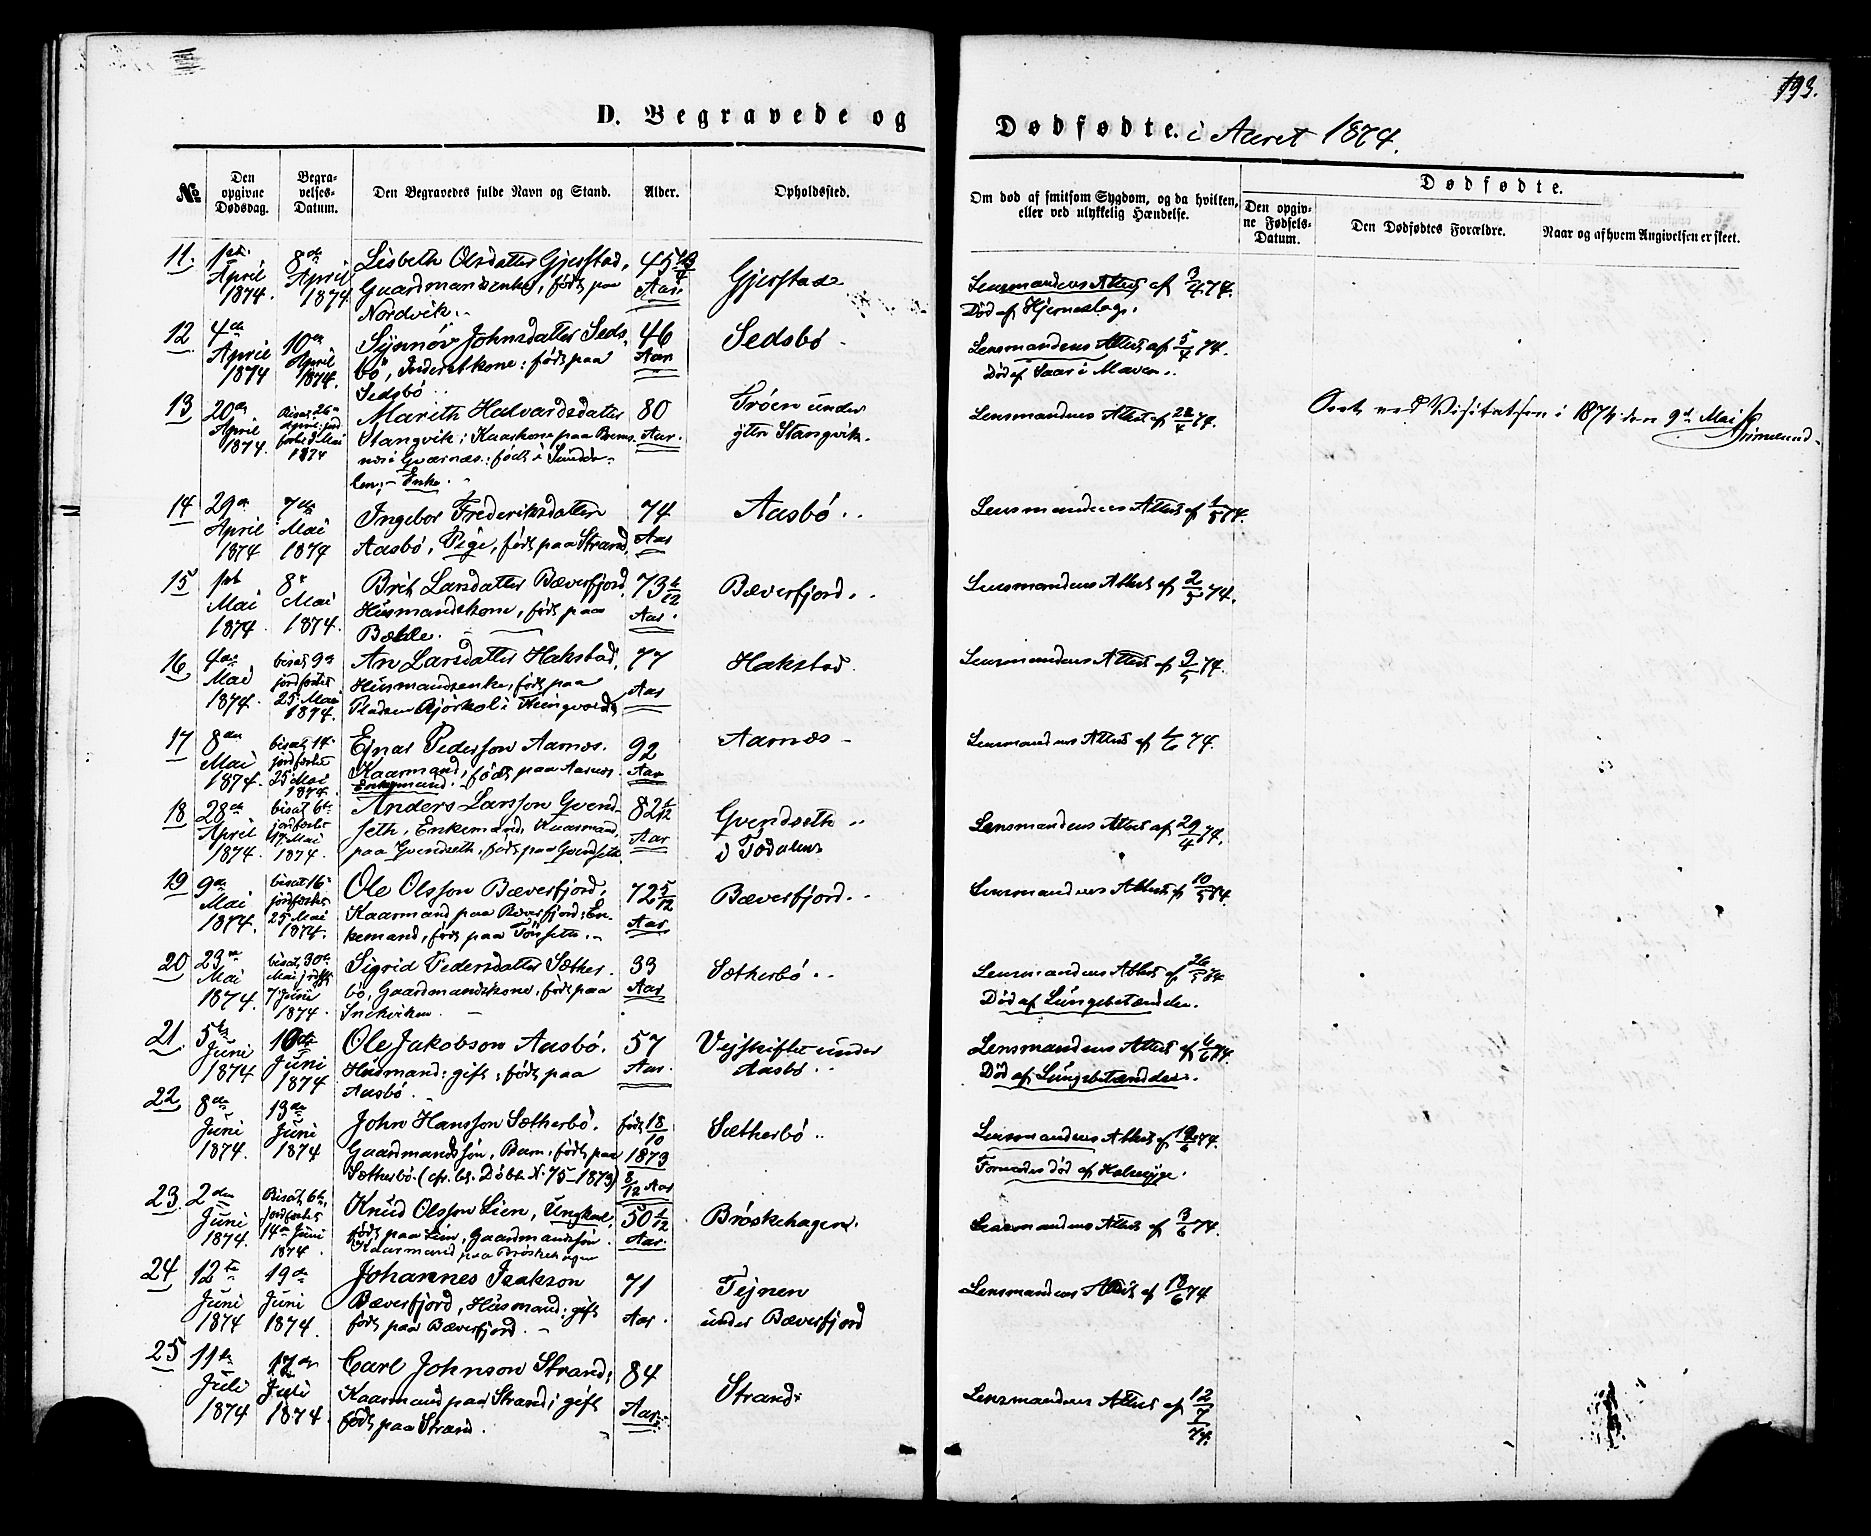 193.
D. Begravede og Dødfødte. i Aaret 1874.
№
Den opgivne Dødsdag.
Begravelses-Datum.
Den Begravedes fulde Navn og Stand.
Alder.
Opholdssted.
Om død af smitsom Sygdom, og da hvilken, eller ved ulykkelig Hændelse.
Dødfødte.
Den opgivne Fødsels-Datum.
Den Dødfødtes Forældre.
Naar og af hvem Angivelsen er skeet.
11. 1ste April 1874. 8de April 1874
Lisbeth Olsdatter Gjerstad,
Gaardmandsenke, født paa
Nordvik.
45 Aar
Gjerstad
Lensmandens Attest af 3/4 74.
Død af Hjerneslag.
12 4de April 1874 10de April 1874.
Synnøv Johnsdatter Seds-
bö, Inderstkone: født paa
Sedsbö
46 Aar
Sedsbö
Lensmandens Attest af 5/4 74.
Död af Saar i Maven.
13 20de April 1874. Bisat 26de April jordfæstet Mai 1874
Marith Halvardsdatter
Stangvik; Kaarkone paa
født i Sundda-
len; Enke.
80 Aar.
Tröen under
ytre Stangvik.
Lensmandens Attest af 22/4 74.
Seet ved Visitatsen i 1874 den 9de Mai
14 29de April 1874 7de Mai 1874
Ingebor Frederiksdatter
Aasbö, Pige, født paa Strand,
74 Aar
Aasbö
Lensmandens Attest af 1/5 74.
15 1ste Mai 1874 8de Mai 1874.
Brit Larsdatter Bæverfjord,
Husmandskone, født paa
Bælle.
73 Aar.
Bæverfjord
Lensmandens Attest af 2/5 74.
16 4de Mai 1874. bisat 9de jordfæstet 25 Mai 1874.
An Larsdatter Hakstad,
Husmandsenke, født paa
Pladsen Bjørkol i Thingvold
77 Aar
Hakstad.
Lensmandens Attest af 9/5 74.
17 8de Mai 1874. bisat 14. jordfæstet 25 Mai 1874.
Ejnar Pedersson Aarnes.
Kaarmand, födt paa Aarnes.
Enkemand.
92 Aar
Aarnæs
Lensmandens Attest af 1/6 74.
18 28de April 1874. bisat 6te jordfæstet 17 Mai 1874.
Anders Larsson Gvend-
seth, Enkemand, Kaarmand
paa Gvendseth, født paa Gvendseth.
82 Aar
Gvendseth
i Todalen
Lensmandens Attest af 29/4 74.
19 9de Mai 1874. bisat 16 jordfæstet 25 Mai 1874.
Ole Olsson Bæverfjord,
Kaarmand paa Bæverfjord; En-
kemand, født paa Tönseth.
72 5/12 Aar
Bæverfjord
Lensmandens Attest af 10/5 74.
20 23de Mai 1874. bisat 30te Mai jordfæstet 7 Juni 1874.
Sigrid Pedersdatter Sæther-
bö, Gaardmandskone, født paa
Snekviken.
33 Aar
Sætherbö
Lensmandens Attest af 26/5 74
Död af Lungebetændelse.
21. 5te Juni 1874 10de Juni 1874
Ole Jakobson Aasbö.
Husmand: gift: født paa
Aasbö.
57 Aar.
Vejskiftet under
Aasbö
Lensmandens Attest af 6/6 74.
Död af Lungebetændelse.
22 8de Juni 1874. 13de Juni 1874
John Hansson Sætherbö.
Gaardmandssön, Barn, födt paa
Sætherbö. (cfr. l. Döbte N. 75-1873)
født 18/10 1873
8/12 Aar
Sætherbö
Lensmandens Attest af 19/6 74.
Formodes död af Halssyge.
23. 2den Juni 1874. Bisat 6te, jordfæstet 14de Juni 1874.
Knud Olsson Lien, Ungkarl,
født paa Lien, Gaardmandssön
Kaarmand paa Bröskehagen
50 Aar.
Bröskehagen.
Lensmandens Attest af 3/6 74.
24 12te Juni 1874 19de Juni 1874.
Johannes Isakson
Bæverfjord, Husmand: gift
födt paa Bæverfjord.
71 Aar.
Tejnen
under Bæverfjord
Lensmandens Attest af 13/6 74
25 11te Juli 1874 17de Juli 1874.
Carl Johnson Strand;
Kaarmand paa Strand; gift
födt paa Strand.
84 Aar.
Strand
Lensmandens Attest af 12/7 74.